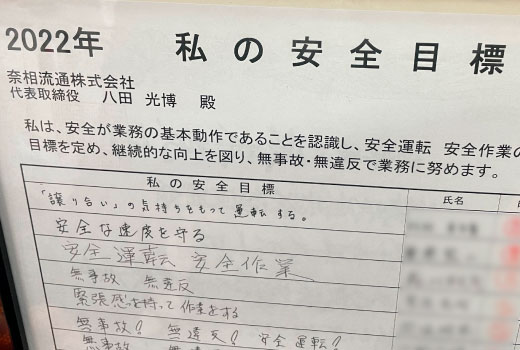 2022年 私の安全目標
奈相流通株式会社
代表取締役 八田 光博 殿
私は、安全が業務の基本動作であることを認識し、安全運転 安全作業の
目標を定め、継続的な向上を図り、無事故・無違反で業務に努めます。
私の安全目標 氏名
「譲り合い」の気持ちをもって運転する。
安全な速度を守る
安全運転 安全作業
無事故 無違反
緊張感を持って作業をする
無事故! 無違反! 安全運転!
無事故 無違反